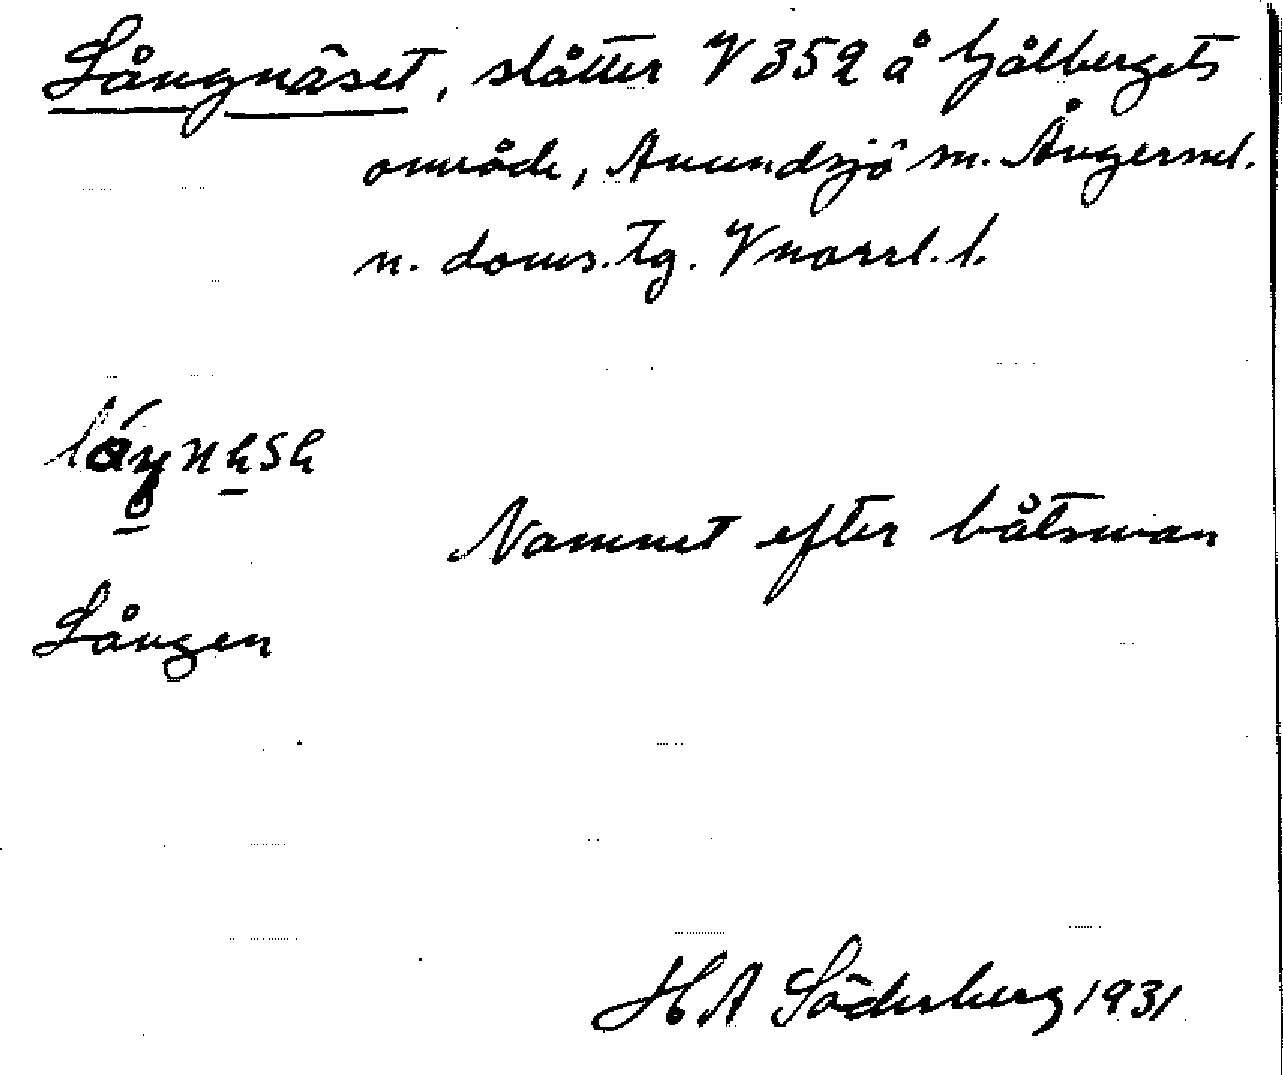 Långnäset, slåtter V 352 å Gålbergets
område, Anundsjö sn. Ångerml.
n. doms. tg. Vnorrl. l.
Namnet efter båtsman
Sången
H A Söderberg 1931